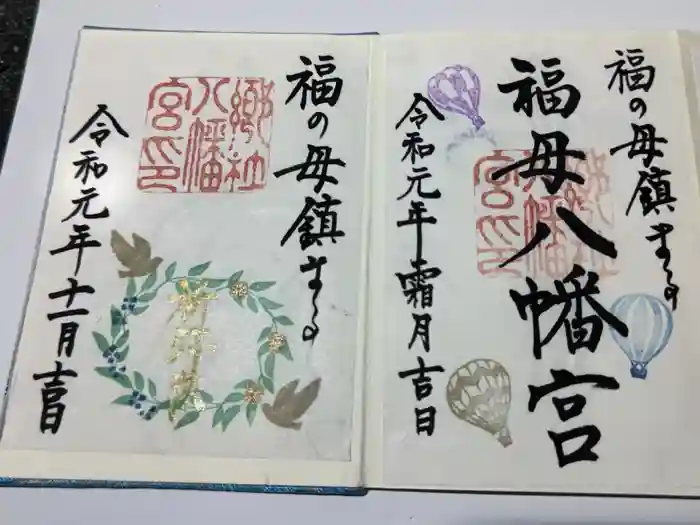 福の母鎮まる
福母八幡宮
令和元年霜月吉日
郷社
八幡
宮印
福の母鎮まる
郷社
八幡
宮印
令和元年十一月吉日